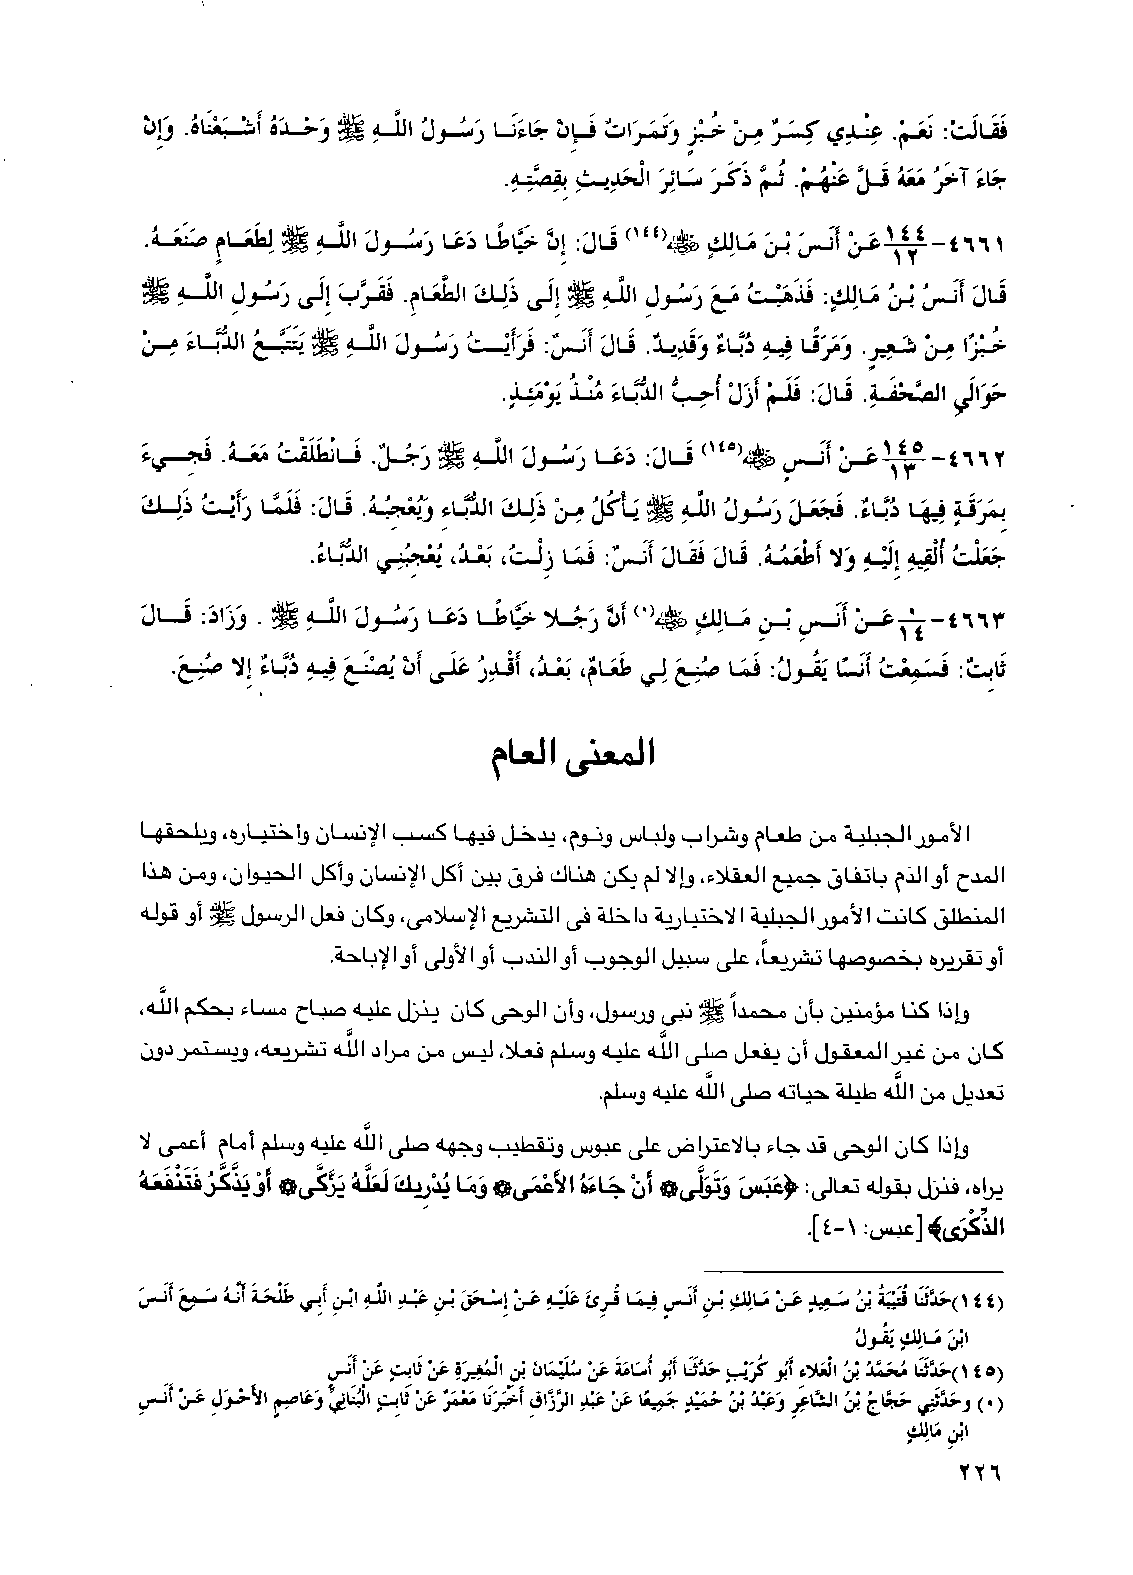 فَقَالَتْ: نَعَمْ. عِنْدِي كِسَرٌ مِنْ خُبْزٍ وَتَمَرَاتٌ فَإِنْ جَاءَنَا رَسُولُ اللَّهِ ﷺ وَحْدَهُ أَشْبَعْنَاهُ. وَإِنْ
جَاءَ آخَرُ مَعَهُ قَلَّ عَنْهُمْ. ثُمَّ ذَكَرَ سَائِرَ الْحَدِيثِ بِقِصَّتِهِ.
٤٦٦١- ١٤٤/١٢ عَنْ أَنَسِ بْنَ مَالِكٍ ﷺ(١٤٤) قَالَ: إِنَّ خَيَّاطًا دَعَا رَسُولَ اللَّهِ ﷺ لِطَعَامٍ صَنَعَهُ.
قَالَ أَنَسُ بْنُ مَالِكٍ: فَذَهَبْتُ مَعَ رَسُولِ اللَّهِ ﷺ إِلَى ذَلِكَ الطَّعَامِ. فَقَرَّبَ إِلَى رَسُولِ اللَّهِ ﷺ
خُبْزًا مِنْ شَعِيرٍ. وَمَرَقًا فِيهِ دُبَّاءٌ وَقَدِيدٌ. قَالَ أَنَسٌ: فَرَأَيْتُ رَسُولَ اللَّهِ ﷺ يَتَتَبَّعُ الدُّبَّاءَ مِنْ
حَوَالَيِ الصَّحْفَةِ. قَالَ: فَلَمْ أَزَلْ أُحِبُّ الدُّبَّاءَ مُنْذُ يَوْمَئِذٍ.
٤٦٦٢- ١٤٥/١٣ عَنْ أَنَسٍ ﷺ(١٤٥) قَالَ: دَعَا رَسُولَ اللَّهِ ﷺ رَجُلٌ. فَانْطَلَقْتُ مَعَهُ. فَجِيءَ
بِمَرَقَةٍ فِيهَا دُبَّاءٌ. فَجَعَلَ رَسُولُ اللَّهِ ﷺ يَأْكُلُ مِنْ ذَلِكَ الدُّبَّاءِ وَيُعْجِبُهُ. قَالَ: فَلَمَّا رَأَيْتُ ذَلِكَ
جَعَلْتُ أُلْقِيهِ إِلَيْهِ وَلا أَطْعَمُهُ. قَالَ فَقَالَ أَنَسٌ: فَمَا زِلْتُ، بَعْدُ، يُعْجِبُنِي الدُّبَّاءُ.
٤٦٦٣- ٠/١٤ عَنْ أَنَسِ بْنِ مَالِكٍ ﷺ(٠) أَنَّ رَجُلا خَيَّاطًا دَعَا رَسُولَ اللَّهِ ﷺ . وَزَادَ: قَالَ
ثَابِتٌ: فَسَمِعْتُ أَنَسًا يَقُولُ: فَمَا صُنِعَ لِي طَعَامٌ، بَعْدُ، أَقْدِرُ عَلَى أَنْ يُصْنَعَ فِيهِ دُبَّاءٌ إِلا صُنِعَ.
المعنى العام
الأمور الجبلية من طعام وشراب ولباس ونوم، يدخل فيها كسب الإنسان واختياره، ويلحقها
المدح أو الذم باتفاق جميع العقلاء، وإلا لم يكن هناك فرق بين أكل الإنسان وأكل الحيوان، ومن هذا
المنطلق كانت الأمور الجبلية الاختيارية داخلة فى التشريع الإسلامى، وكان فعل الرسول ﷺ أو قوله
أو تقريره بخصوصها تشريعاً، على سبيل الوجوب أو الندب أو الأولى أو الإباحة.
وإذا كنا مؤمنين بأن محمداً ﷺ نبى ورسول، وأن الوحى كان ينزل عليه صباح مساء بحكم اللَّه،
كان من غير المعقول أن يفعل صلى اللَّه عليه وسلم فعلا، ليس من مراد اللَّه تشريعه، ويستمر دون
تعديل من اللَّه طيلة حياته صلى اللَّه عليه وسلم.
وإذا كان الوحى قد جاء بالاعتراض على عبوس وتقطيب وجهه صلى اللَّه عليه وسلم أمام أعمى لا
يراه، فنزل بقوله تعالى: ﴿عَبَسَ وَتَوَلَّى۞ أَنْ جَاءَهُ الأَعْمَى۞ وَمَا يُدْرِيكَ لَعَلَّهُ يَزَّكَّى۞ أَوْ يَذَّكَّرُ فَتَنْفَعَهُ
الذِّكْرَى﴾ [عبس: ١-٤].
(١٤٤)حَدَّثَنَا قُتَيْبَةُ بْنُ سَعِيدٍ عَنْ مَالِكِ بْنِ أَنَسٍ فِيمَا قُرِئَ عَلَيْهِ عَنْ إِسْحَقَ بْنِ عَبْدِ اللَّهِ ابْنِ أَبِي طَلْحَةَ أَنَّهُ سَمِعَ أَنَسَ
ابْنَ مَالِكٍ يَقُولُ
(١٤٥)حَدَّثَنَا مُحَمَّدُ بْنُ الْعَلاءِ أَبُو كُرَيْبٍ حَدَّثَنَا أَبُو أُسَامَةَ عَنْ سُلَيْمَانَ بْنِ الْمُغِيرَةِ عَنْ ثَابِتٍ عَنْ أَنَسٍ
(٠) وحَدَّثَنِي حَجَّاجُ بْنُ الشَّاعِرِ وَعَبْدُ بْنُ حُمَيْدٍ جَمِيعًا عَنْ عَبْدِ الرَّزَّاقِ أَخْبَرَنَا مَعْمَرٌ عَنْ ثَابِتٍ الْبُنَانِيِّ وَعَاصِمٍ الأَحْوَلِ عَنْ أَنَسِ
ابْنِ مَالِكٍ
٢٢٦